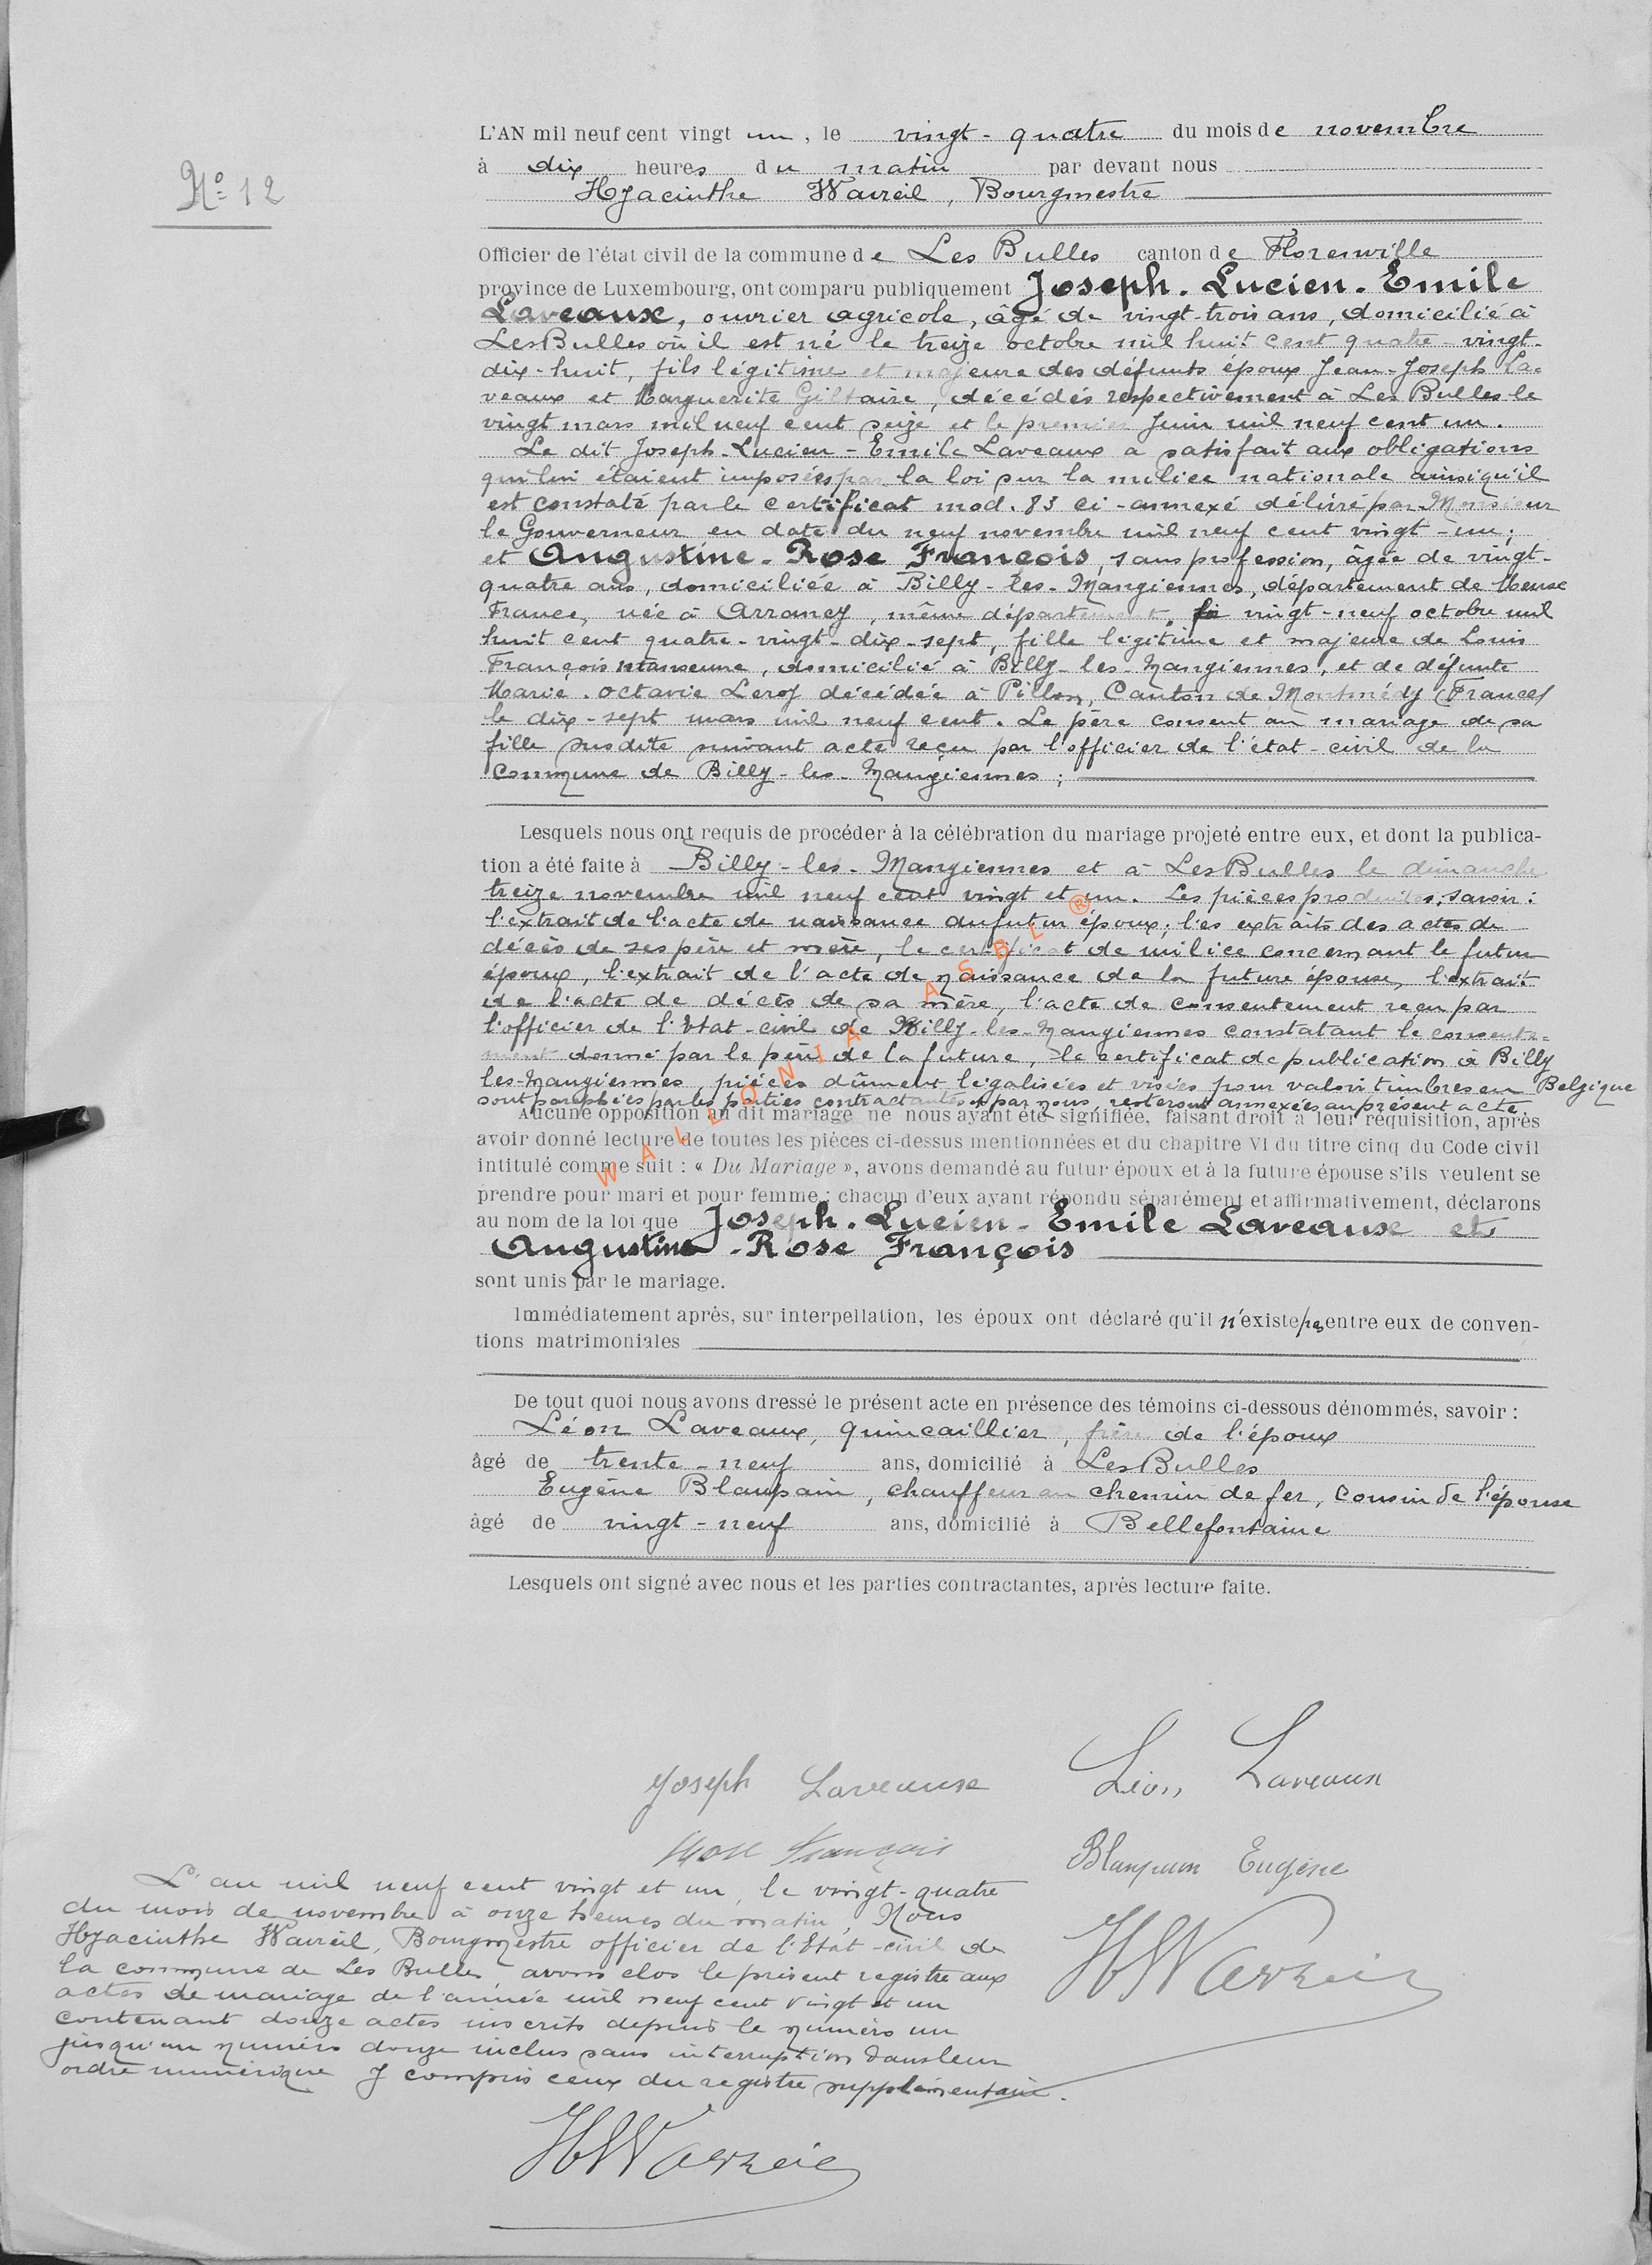 N° 12
L'AN mil neuf cent vingt un, le vingt-quatre du mois de novembre
à dix heures du matin par devant nous
Hyacinthe Wavreil, Bourgmestre
Officier de l'état civil de la commune de Les Bulles canton de Florenville
province de Luxembourg, ont comparu publiquement Joseph-Lucien-Emile
Laveaux, ouvrier agricole, âgé de vingt-trois ans, domicilié à
Les Bulles où il est né le treize octobre mil huit cent quatre-vingt-
dix-huit, fils légitime et majeure des défunts époux Jean-Joseph La-
veaux et Marguerite Giltaire, décédés respectivement à Les Bulles le
vingt mars mil neuf cent seize et le premier Juin mil neuf cent un.
Le dit Joseph-Lucien-Emile Laveaux a satisfait aux obligations
qui lui étaient imposées par la loi sur la milice nationale ainsi qu'il
est constaté par le certificat mod. 83 ci-annexé délivré par Monsieur
le Gouverneur en date du neuf novembre mil neuf cent vingt-un;
et Augustine-Rose François, sans profession, âgée de vingt-
quatre ans, domiciliée à Billy-les-Mangiennes, département de Meuse
France, née à Arrancy, même département, le vingt-neuf octobre mil
huit cent quatre-vingt-dix-sept, fille légitime et majeure de Louis
François manoeuvre, domicilié à Billy-les-Mangiennes, et de défunte
Marie-Octavie Leroy décédée à Pillon, Canton de Montmédy (France)
le dix-sept mars mil neuf cent. Le père consent au mariage de sa
fille susdite suivant acte reçu par l'officier de l'état-civil de la
Commune de Billy-les-Mangiennes;
Lesquels nous ont requis de procéder à la célébration du mariage projeté entre eux, et dont la publica-
tion a été faite à Billy-les-Mangiennes et à Les Bulles le dimanche
treize novembre mil neuf cent vingt et un. Les pièces produites, savoir:
l'extrait de l'acte de naissance du futur époux; les extraits des actes de
décès de ses père et mère, le certificat de milice concernant le futur
époux, l'extrait de l'acte de naissance de la future épouse, l'extrait
de l'acte de décès de sa mère, l'acte de consentement reçu par
l'officier de l'Etat-civil de Billy-les-Mangiennes constatant le consente-
ment donné par le père de la future, le certificat de publication à Billy
les-Mangiennes, pièces dûment légalisées et visées pour valoir timbres en Belgique
sont paraphées par les parties contractantes et par nous, resteront annexées au présent acte.
Aucune opposition au dit mariage ne nous ayant été signifiée, faisant droit à leur réquisition, après
avoir donné lecture de toutes les pièces ci-dessus mentionnées et du chapitre VI du titre cinq du Code civil
intitulé comme suit : « Du Mariage », avons demandé au futur époux et à la future épouse s'ils veulent se
prendre pour mari et pour femme ; chacun d'eux ayant répondu séparément et affirmativement, déclarons
au nom de la loi que Joseph-Lucien-Emile Laveaux et
Augustine-Rose François
sont unis par le mariage.
Immédiatement après, sur interpellation, les époux ont déclaré qu'il n'existe pas entre eux de conven-
tions matrimoniales
De tout quoi nous avons dressé le présent acte en présence des témoins ci-dessous dénommés, savoir :
Léon Laveaux, quincaillier, frère de l'époux
âgé de trente-neuf ans, domicilié à Les Bulles
Eugène Blanpain, chauffeur au chemin de fer, cousin de l'épouse
âgé de vingt-neuf ans, domicilié à Bellefontaine
Lesquels ont signé avec nous et les parties contractantes, après lecture faite.
Joseph Laveaux Léon Laveaux
Rose François Blanpain Eugène
HWavreil
L'an mil neuf cent vingt et un, le vingt-quatre
du mois de novembre à onze heures du matin, Nous
Hyacinthe Wavreil, Bourgmestre officier de l'Etat-civil de
la commune de Les Bulles avons clos le présent registre aux
actes de mariage de l'année mil neuf cent vingt et un
contenant douze actes inscrits depuis le numéro un
jusqu'au numéro douze inclus sans interruption dans leur
ordre numérique y compris ceux du registre supplémentaire.
HWavreil
WALLONIA ASBL ®